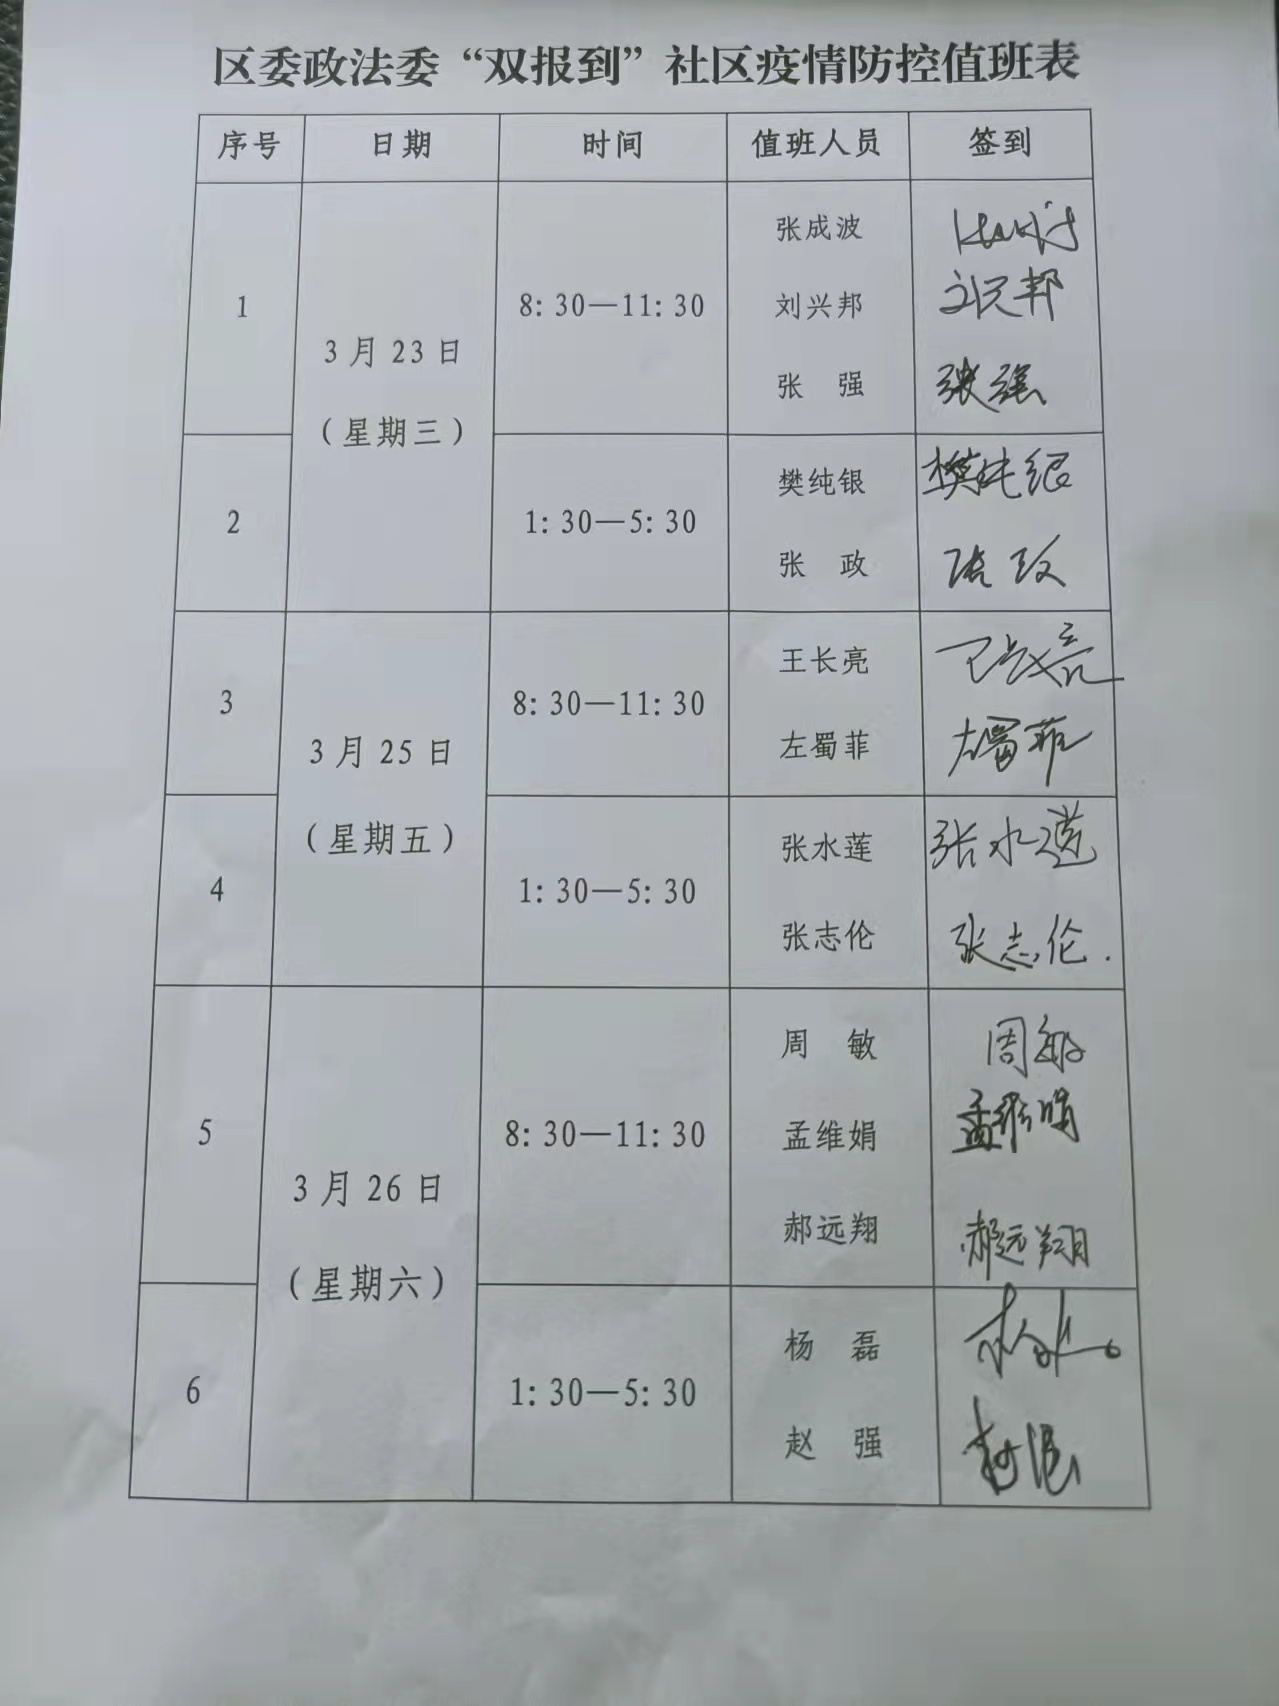 区委政法委“双报到”社区疫情防控值班表
序号 日期 时间 值班人员 签到
1 3月23日（星期三） 8:30—11:30 张成波
刘兴邦 刘兴邦
张 强 张强
2 1:30—5:30 樊纯银 樊纯银
张 政 张政
3 3月25日（星期五） 8:30—11:30 王长亮 王长亮
左蜀菲 左蜀菲
4 1:30—5:30 张水莲 张水莲
张志伦 张志伦.
5 3月26日（星期六） 8:30—11:30 周 敏 周敏
孟维娟 孟维娟
郝远翔 郝远翔
6 1:30—5:30 杨 磊
赵 强